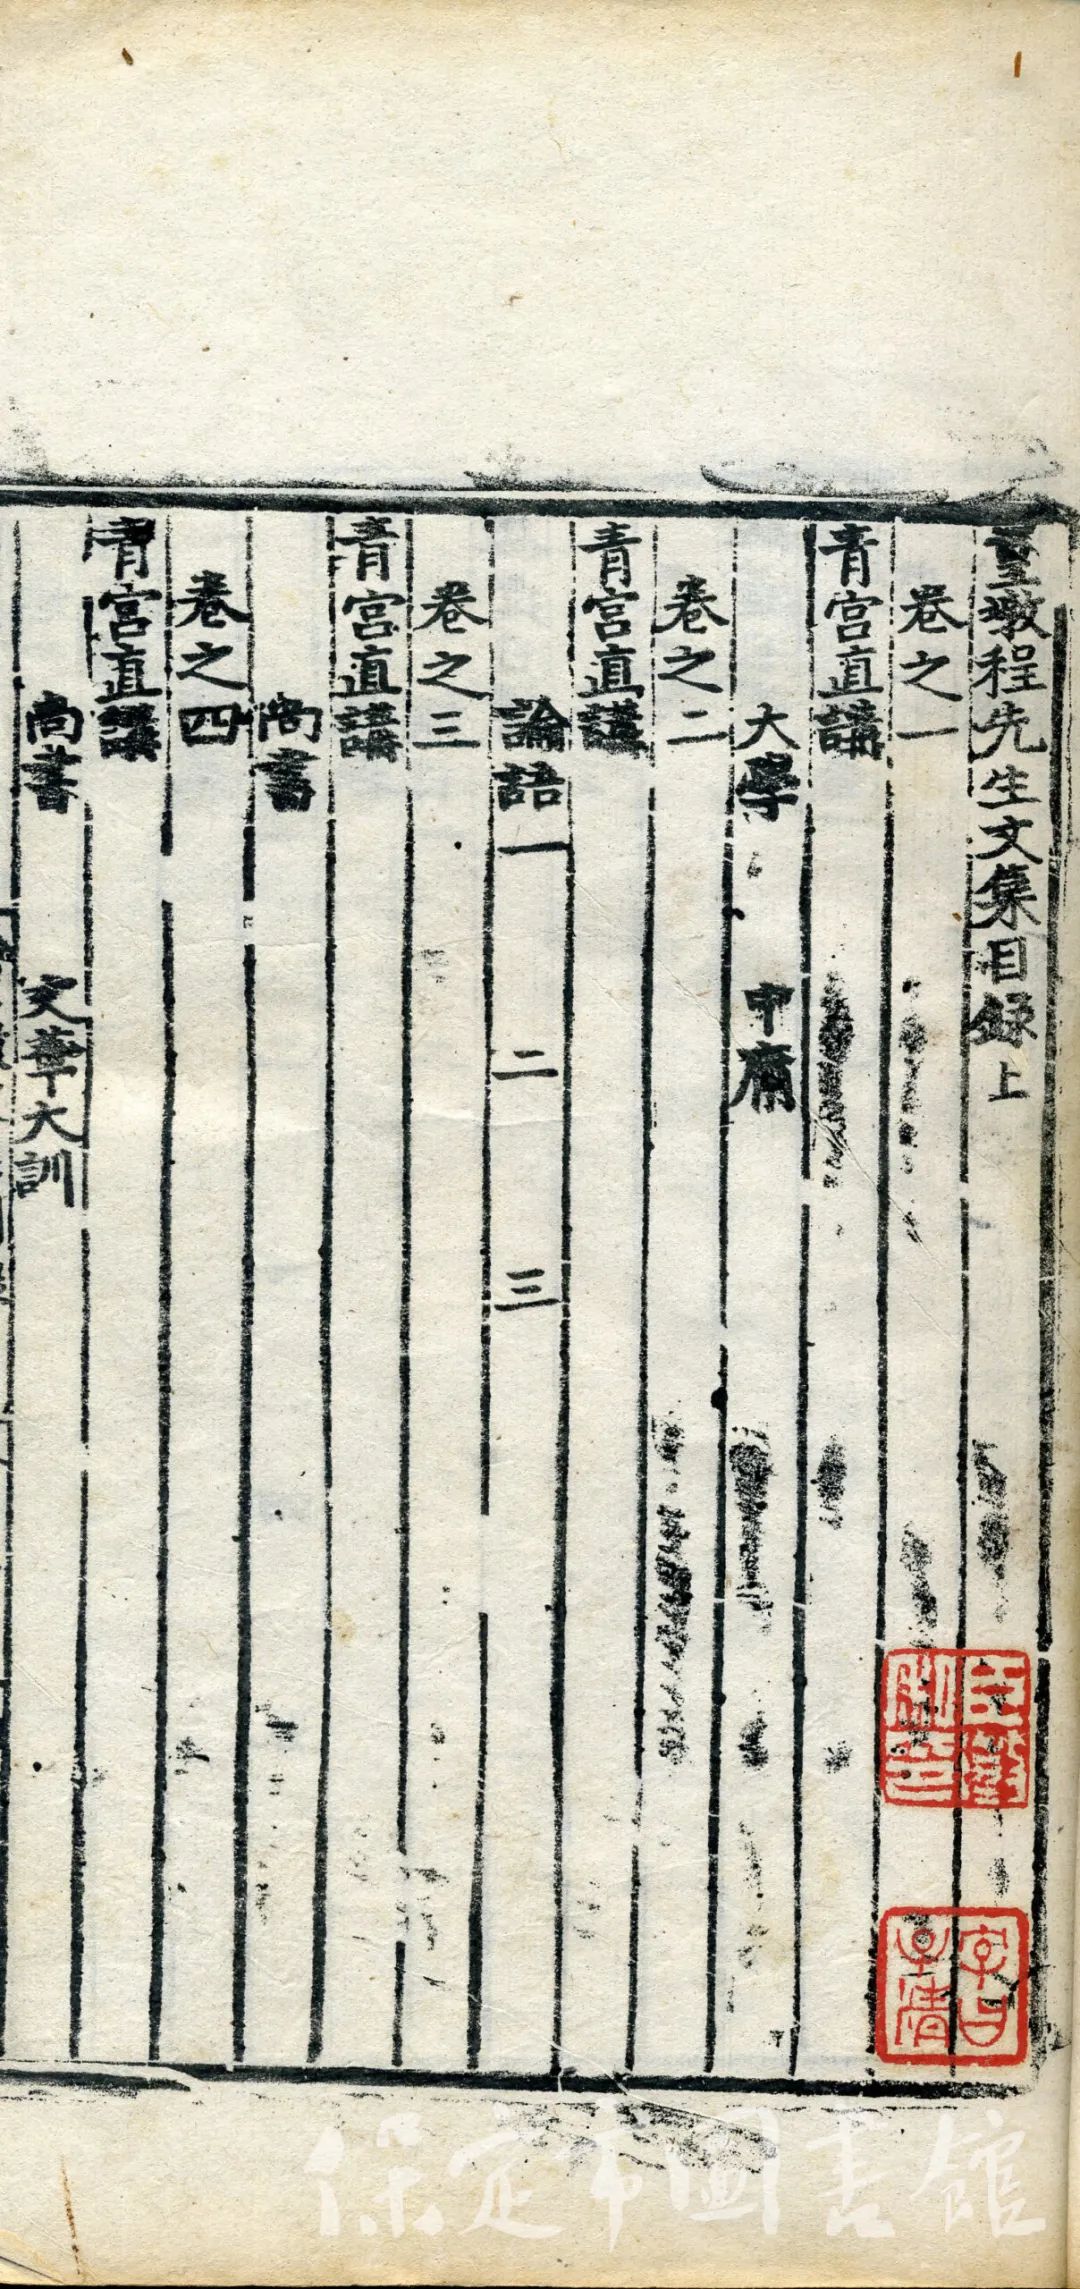 篁墩程先生文集目録上
卷之一
青宮直講
大學 中庸
卷之二
青宮直講
論語一 二 三
卷之三
青宮直講
尚書
卷之四
青宮直講
尚書 文華大訓
保定市圖書館